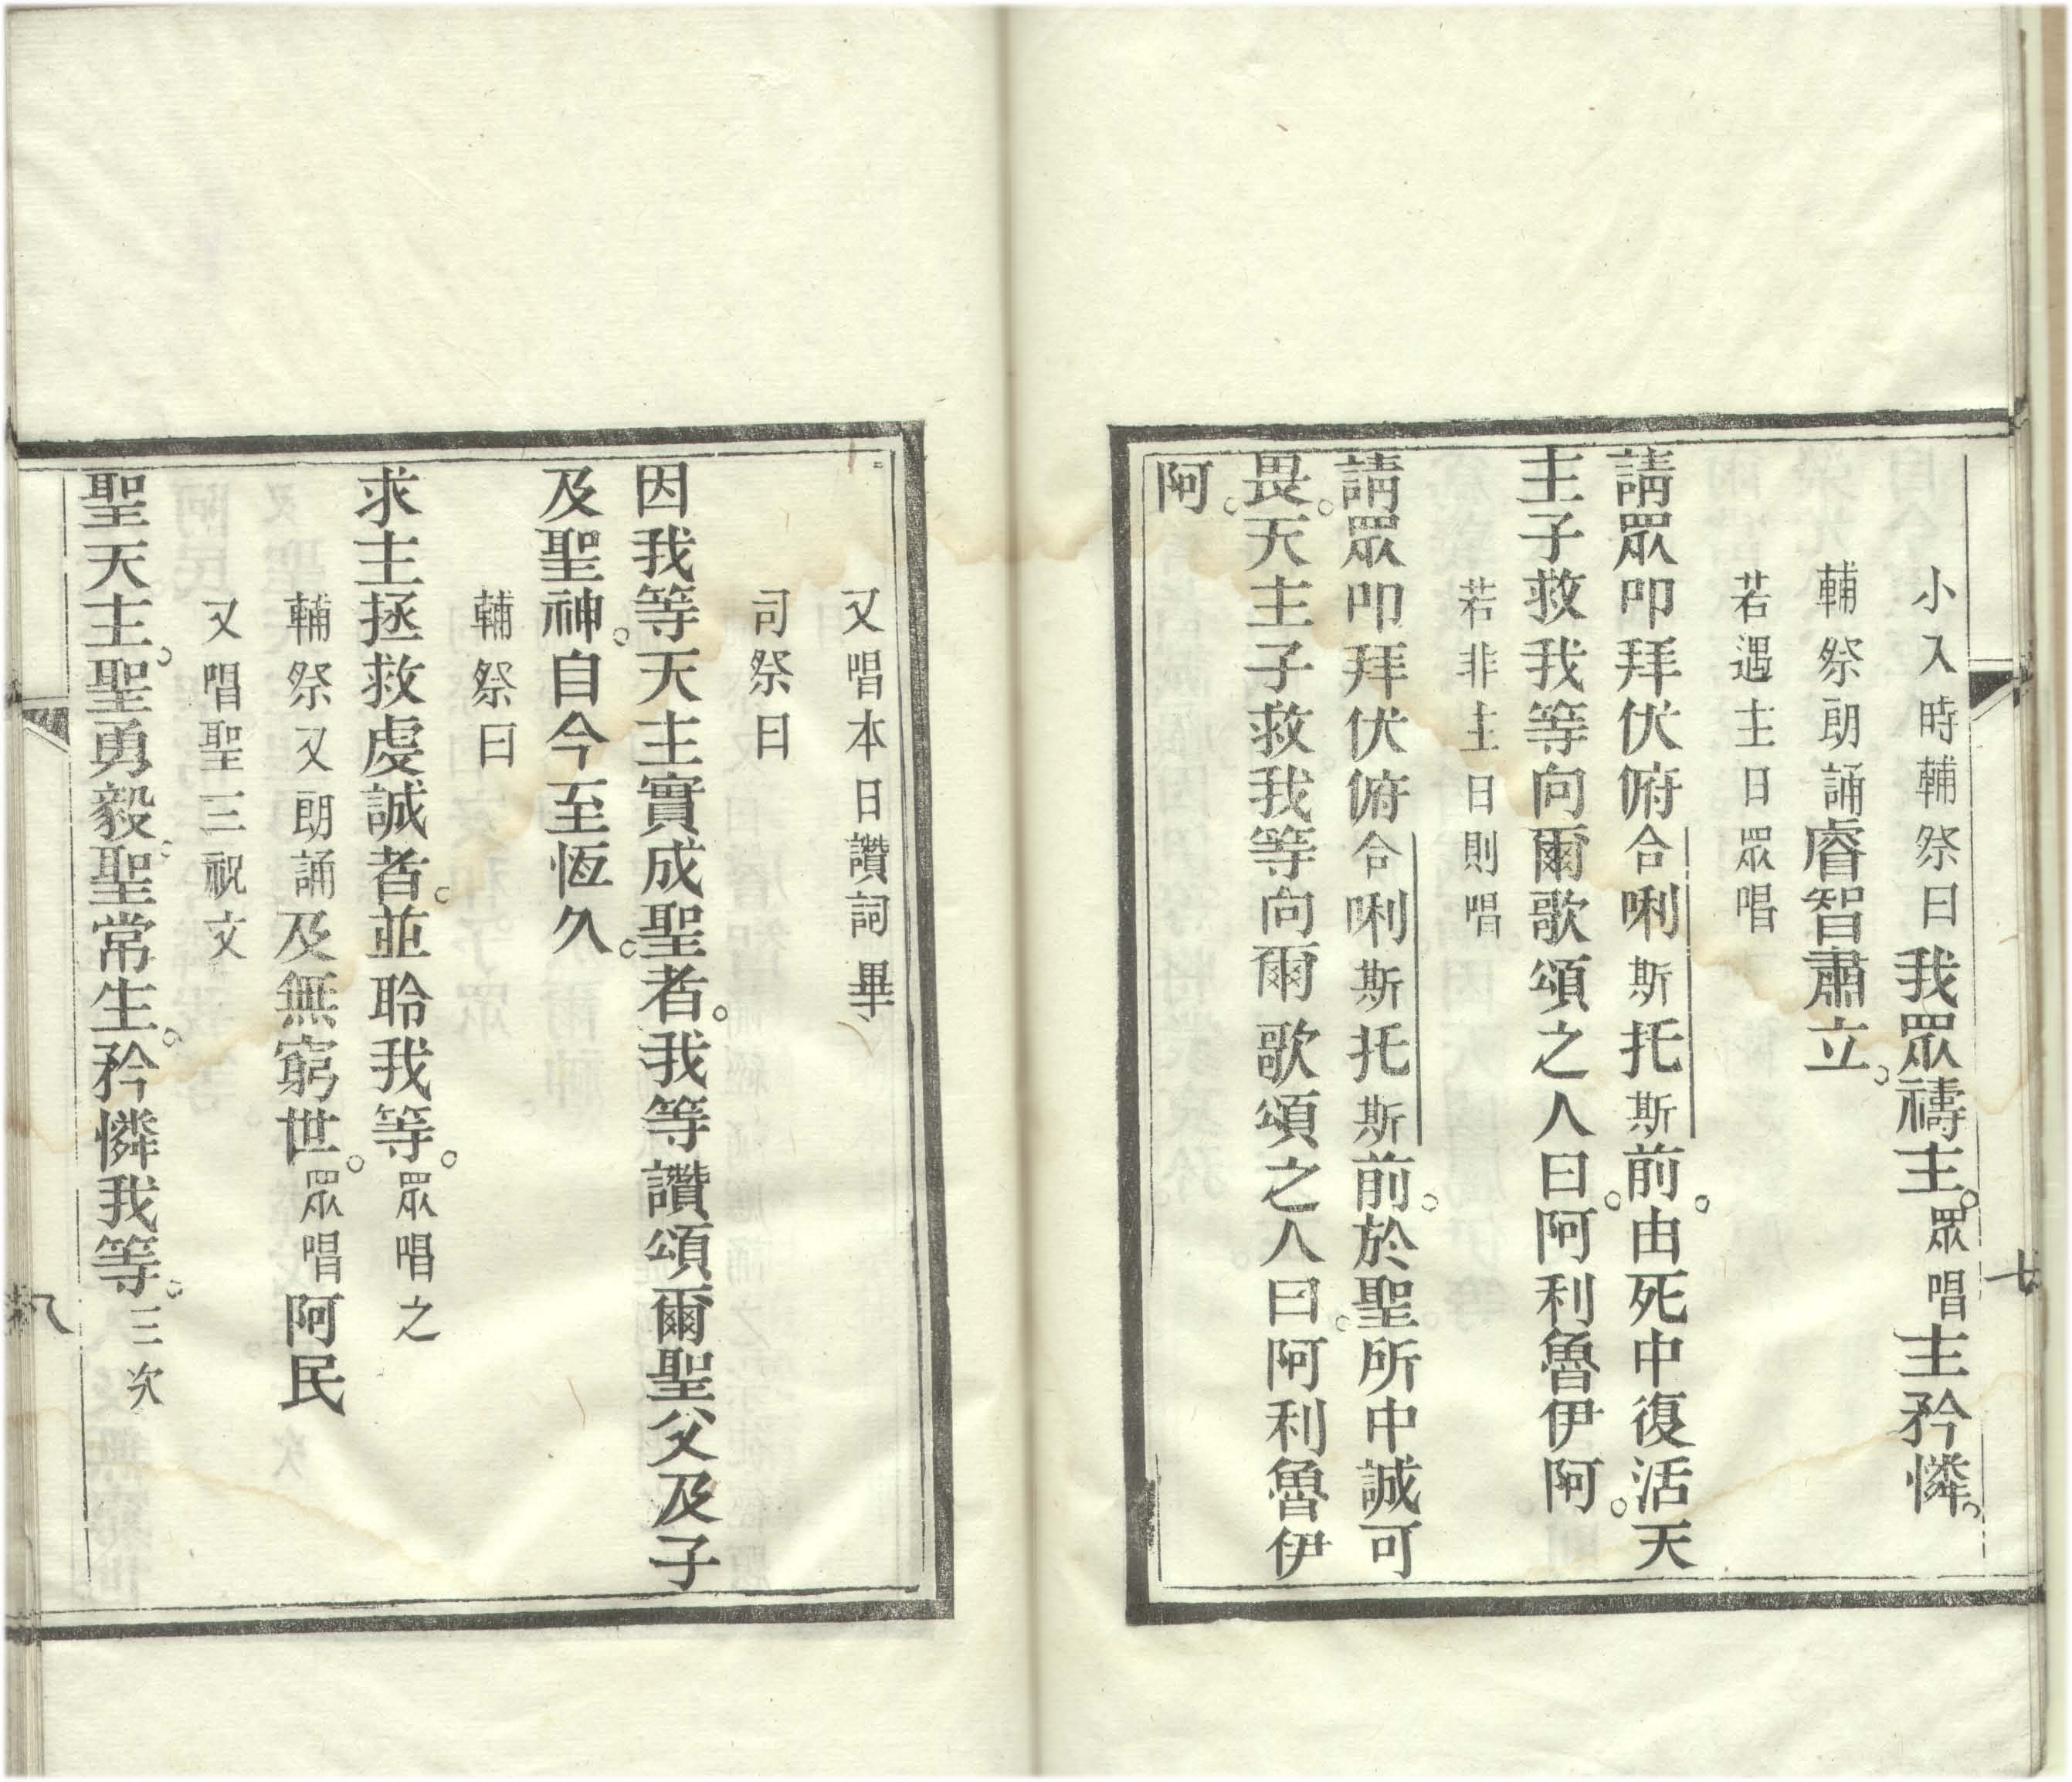 小入時輔祭曰我眾禱主。眾唱主矜憐。
輔祭朗誦睿智肅立。
若遇主日眾唱
請眾叩拜伏俯合唎斯托斯前。由死中復活天
主子救我等向爾歌頌之人曰。阿利魯伊阿。
若非主日則唱
請眾叩拜伏俯合唎斯托斯前。於聖所中誠可
畏。天主子救我等向爾歌頌之人曰。阿利魯伊
阿。
七
又唱本日讚詞畢
司祭曰
因我等天主實成聖者。我等讚頌爾聖父及子
及聖神。自今至恆久。
輔祭曰
求主拯救虔誠者。並聆我等。眾唱之
輔祭又朗誦及無窮世。眾唱阿民
又唱聖三祝文
聖天主。聖勇毅。聖常生。矜憐我等。三次
八